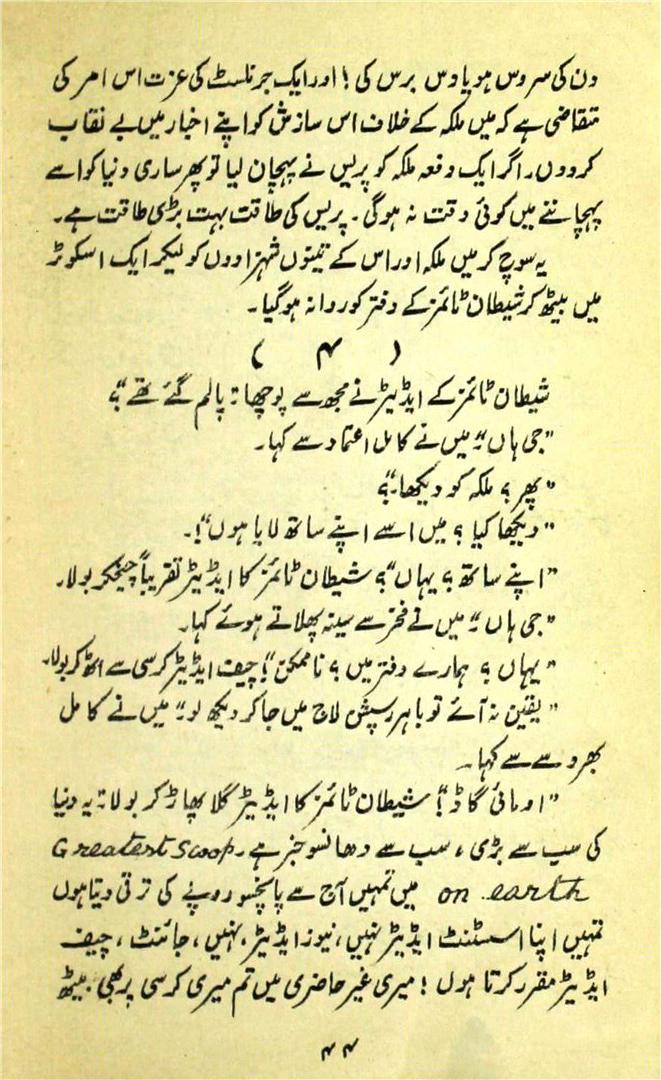 دن کی سروس ہو یا دس برس کی! اور ایک جرنلسٹ کی عزت اس امر کی
متقاضی ہے کہ میں ملکہ کے خلاف اس سازش کو اپنے اخبار میں بے نقاب
کر دوں۔ اگر ایک دفعہ ملکہ کو پریس نے پہچان لیا تو پھر ساری دنیا کو اسے
پہچاننے میں کوئی دقت نہ ہوگی۔ پریس کی طاقت بہت بڑی طاقت ہے۔
یہ سوچ کر میں ملکہ اور اس کے تینوں شہزادوں کو لیکر ایک اسکوٹر
میں بیٹھ کر شیطان ٹائمز کے دفتر کو روانہ ہوگیا۔
(۴)
شیطان ٹائمز کے ایڈیٹر نے مجھ سے پوچھا: "پالم گئے تھے"؟
"جی ہاں" میں نے کامل اعتماد سے کہا۔
"پھر؟ ملکہ کو دیکھا"؟
"دیکھا کیا؟ میں اسے اپنے ساتھ لایا ہوں"!۔
"اپنے ساتھ؟ یہاں"؟ شیطان ٹائمز کا ایڈیٹر تقریباً چیخکر بولا۔
"جی ہاں" میں نے فخر سے سینہ پھلاتے ہوئے کہا۔
"یہاں؟ ہمارے دفتر میں؟ ناممکن"! چیف ایڈیٹر کرسی سے اٹھ کر بولا۔
"یقین نہ آئے تو باہر رسپشن لاج میں جا کر دیکھ لو" میں نے کامل
بھروسے سے کہا۔
"او مائی گاڈ"! شیطان ٹائمز کا ایڈیٹر گلا پھاڑ کر بولا: "یہ دنیا
کی سب سے بڑی، سب سے دھانسو خبر ہے۔ Greatest Scoop
on earth میں تمہیں آج سے پانچسو روپے کی ترقی دیتا ہوں
تمہیں اپنا اسسٹنٹ ایڈیٹر نہیں، نیوز ایڈیٹر، نہیں، جائنٹ، چیف
ایڈیٹر مقرر کرتا ہوں! میری غیر حاضری میں تم میری کرسی پر بھی بیٹھ
۴۴